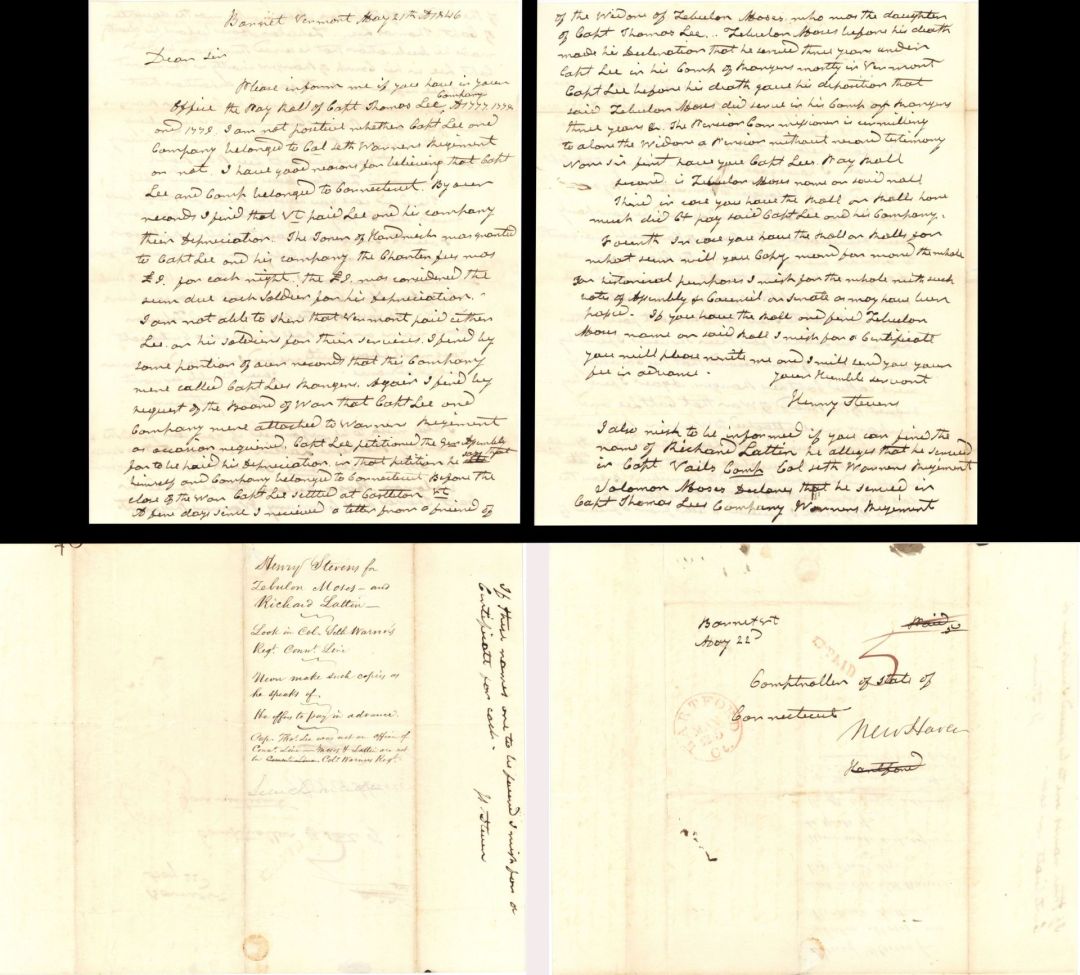 Barnet Vermont May 21th A 1846
Dear Sir
Please inform me if you have in your
Company
Office the Pay Roll of Capt Thomas Lee A 1777 1778
and 1779. I am not positive whether Capt Lee and
Company belonged to Col Seth Warners Regiment
or not. I have good reasons for believing that Capt
Lee and Comp belonged to Connecticut. By our
records I find that Vt paid Lee and his company
their Depreciation. The Town of Hardwick was granted
to Capt Lee and his company the Charter fees was
£9. for each right. the £9. was considered the
sum due each Soldier for his Depreciation.
I am not able to show that Vermont paid either
Lee or his Soldiers for their services. I find by
some portion of our records that this Company
were called Capt Lees Rangers. Again I find by
request of the Board of War that Capt Lee and
Company were attached to Warners Regiment
as occasion required. Capt Lee petitioned the Gen Assembly
for to be paid his Depreciation in that petition he says that
himself and Company belonged to Connecticut Before the
close of the War Capt Lee settled at Castleton Vt
A few days since I received a letter from a friend of
of the Widow of Zebulon Moses who was the daughter
of Capt Thomas Lee. Zebulon Moses before his death
made his Declaration that he served three years under
Capt Lee in his Comp of Rangers mostly in Vermont
Capt Lee before his death gave his deposition that
said Zebulon Moses did serve in his Comp of Rangers
three years &. The Pension Commissioner is unwilling
to alow the Widow a Pension without record testimony
Now Sir first have you Capt Lees Pay Roll
second is Zebulon Moses name on said roll
Third in case you have the Roll or Rolls how
much did Ct pay said Capt Lee and his Company.
Fourth In case you have the Roll or Rolls for
what sum will you Copy word for word the whole
For historical purposes I wish for the whole with such
votes of Assembly & Council or Senate as may have been
passed. If you have the Roll and find Zebulon
Moses name on said Roll I wish for a Certificate
you will please write me and I will send you your
fee in advance. your Humble servant
Henry Stevens
I also wish to be informed if you can find the
name of Richard Lattin he alleges that he served
in Capt Vails Comp Col Seth Warners Regiment
Solomon Moses Declares that he served in
Capt Thomas Lees Company Warners Regiment
Henry Stevens for
Zebulon Moses – and
Richard Lattin –
Look in Col. Seth Warner's
Regt. Connt. Line
make such copies as
he speaks of.
He offers to pay in advance.
Cap. Thos. Lee was not an officer of
Connt. Line – Moses & Lattin are not
in Connt. Line. Col. Warners Regt.
If these names are to be found I wish for a
Certificate for each. H. Stevens
Barnet Vt
May 22d
Paid
PAID
5
Comptroller of State of
Connecticut
New Haven
Hartford
HARTFORD
MAY
25
Ct.